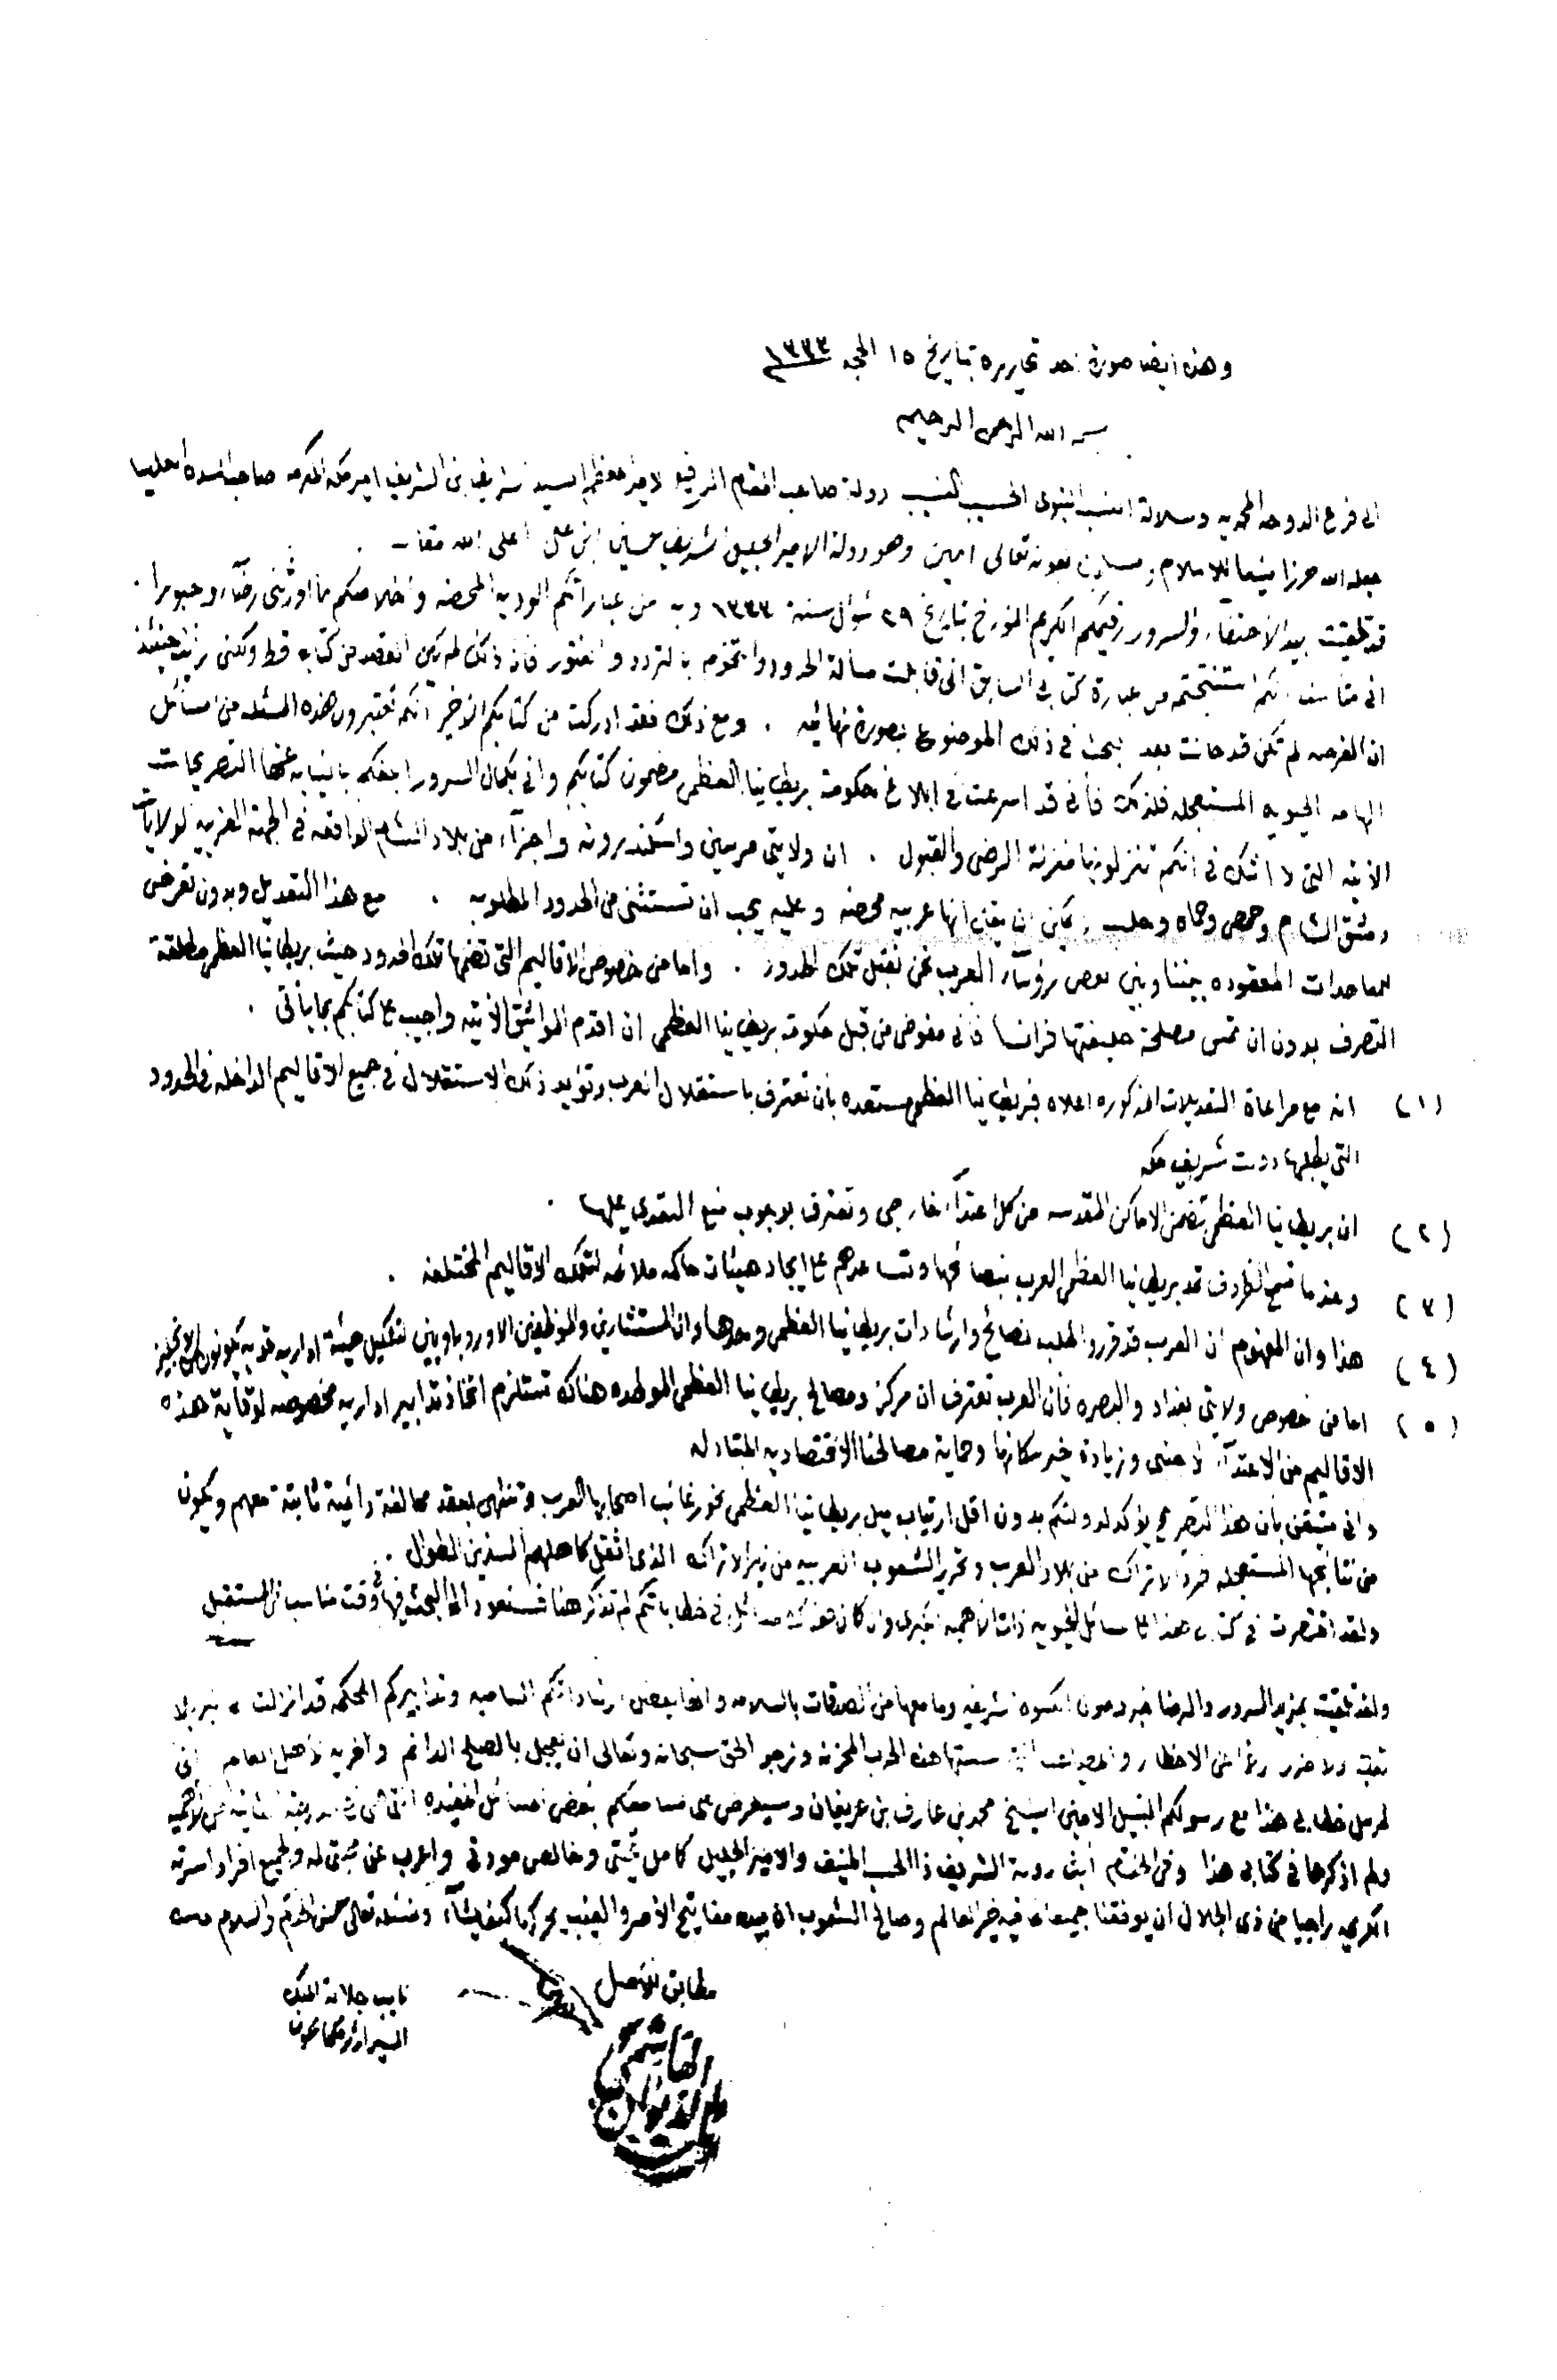 وهذه ايضا صورة احد تحاريره بتاريخ ١٥ الحجه ١٣٣٣
بسم الله الرحمن الرحيم
الى فرع الدوحه المحمديه وسلالة النسب النبوى الحسيب النسيب دولة صاحب المقام الرفيع الامير المعظم السيد الشريف بن الشريف امير مكه المكرمه صاحب السده العليا
جعله الله حرزا منيعا للاسلام والمسلمين بعونه تعالى امين وهو دولة الامير الجليل الشريف حسين ابن على اعلى الله مقامه
قد تلقيت بيد الاحتفاء والسرور رقيمكم الكريم المؤرخ بتاريخ ٢٩ شوال سنة ١٣٣٣ وبه من عباراتكم الوديه المحضه واخلاصكم ما اورثنى رضاء وحبورا .
انى متأسف انكم استنتجتم من عبارة كتابى السابق انى قابلت مسألة الحدود والتخوم بالتردد والفتور فان ذلك لم يكن القصد من كتابى قط ولكنى رأيت حينئذ
ان الفرصه لم تكن قد حانت بعد للبحث فى ذلك الموضوع بصورة نهائيه . ومع ذلك فقد ادركت من كتابكم الاخير انكم تعتبرون هذه المسئله من المسائل
الهامه الحيويه المستعجله فلذلك فأنى قد اسرعت فى ابلاغ حكومة بريطانيا العظمى مضمون كتابكم وانى بكمال السرور ابلغكم بالنيابه عنها التصريحات
الآتيه التى لا اشك فى انكم تنزلونها منزلة الرضى والقبول . ان ولايتى مرسين واسكندرونه واجزاء من بلاد الشام الواقعه فى الجهة الغربيه لولايات
دمشق الشام وحمص وحماه وحلب لا يمكن ان يقال انها عربيه محضه وعليه يجب ان تستثنى من الحدود المطلوبه . مع هذا التعديل وبدون تعرض
للمعاهدات المعقوده بيننا وبين بعض رؤساء العرب نحن نقبل تلك الحدود . واما من خصوص الاقاليم التى تضمها تلك الحدود حيث بريطانيا العظمى مطلقة
التصرف بدون ان تمس مصلحة حليفتها فرانسا فانى مفوض من قبل حكومة بريطانيا العظمى ان اقدم المواثيق الآتيه واجيب على كتابكم بما يأتى .
(١) انه مع مراعاة التعديلات المذكوره اعلاه فبريطانيا العظمى مستعده بأن تعترف باستقلال العرب وتؤيد ذلك الاستقلال فى جميع الاقاليم الداخله فى الحدود
التى يطلبها دولة شريف مكه
(٢) ان بريطانيا العظمى تضمن الاماكن المقدسه من كل اعتداء خارجى وتعترف بوجوب منع التعدى عليها .
(٣) وعندما تسمح الظروف تمد بريطانيا العظمى العرب بنصائحها وتساعدهم على ايجاد هيئات حاكمه ملائمه لتلك الاقاليم المختلفه .
(٤) هذا وان المفهوم ان العرب قد قرروا طلب نصائح وارشادات بريطانيا العظمى وحدها وان المستشارين والموظفين الاوروباويين لتشكيل هيئة اداريه قويه يكونون من الانجليز
(٥) اما من خصوص ولايتى بغداد والبصره فان العرب تعترف ان مركز ومصالح بريطانيا العظمى الموطده هناك تستلزم اتخاذ تدابير اداريه مخصوصه لوقاية هذه
الاقاليم من الاعتداء الاجنبى وزيادة خير سكانها وحماية مصالحنا الاقتصاديه المتبادله
وانى متيقن بأن هذا التصريح يؤكد لدولتكم بدون اقل ارتياب ميل بريطانيا العظمى نحو رغائب اصحابها العرب وتنتهى بعقد محالفة دائمية ثابتة معهم ويكون
من نتائجها المستعجله طرد الاتراك من بلاد العرب وتحرير الشعوب العربيه من نير الاتراك الذى اثقل كاهلهم السنين الطوال .
ولقد اقتصرت فى كتابى هذا على المسائل الحيويه ذات الاهميه الكبرى وان كان هناك مسائل فى خطاباتكم لم تذكر هنا فسنعود الى البحث فيها فى وقت مناسب فى المستقبل
ولقد تلقيت بمزيد السرور والرضا خبر وصول الكسوه الشريفه وما معها من الصدقات بالسلامه وانها بفضل ارشاداتكم الساميه وتدابيركم المحكمه قد انزلت الى البر بلا
تعب ولا ضرر رغما عن الاخطار والمصاعب التى سببتها هذه الحرب المحزنه ونرجو الحق سبحانه وتعالى ان يعجل بالصلح الدائم والحريه لاهل العالم انى
مرسل خطابى هذا مع رسولكم النبيل الامين الشيخ محمد بن عارف بن عريفان وسيعرض على مسامعكم بعض المسائل المفيده التى هى من الدرجة الثانيه من الاهميه
ولم اذكرها فى كتابى هذا وفى الختام ابث دولة الشريف ذا الحسب المنيف والامير الجليل كامل تحيتى وخالص مودتى واعرب عن محبتى له ولجميع افراد اسرته
الكريمه راجيا من ذى الجلال ان يوفقنا جميعا لما فيه خير العالم وصالح الشعوب ان بيده مفاتيح الامر والغيب يحركها كيف يشاء ونسئله تعالى حسن الختام والسلام
مطابق للاصل
نايب جلالة الملك
السير ارثر مكماهون
الديوان الهاشمى